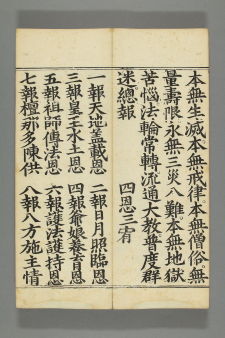 本無生滅本無戒律本無僧俗無
量壽眼永無三災八難本無地獄
苦惱法輪常轉流通大教普度群
迷總報　四恩三有
一報天地盖載恩　二報日月照臨恩
三報皇王水土恩　四報爺娘養育恩
五報祖師傳法恩　六報護法護持恩
七報檀那多陳供　八報八方施主情